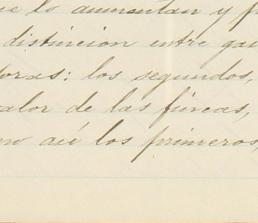 ue lo aumentan y p
distincion entre ga
doras: los segundos,
valor de las fincas,
no así los primeros,